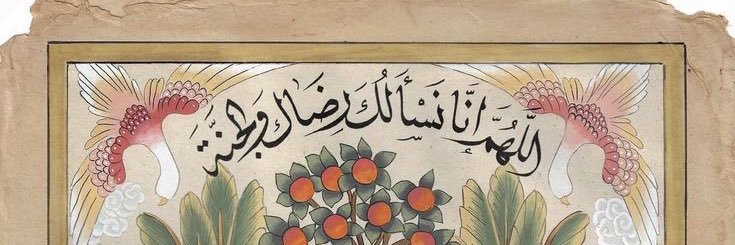 اللَّهُمَّ اِنَّا نَسْأَلُكَ رِضَاكَ وَالْجَنَّةَ